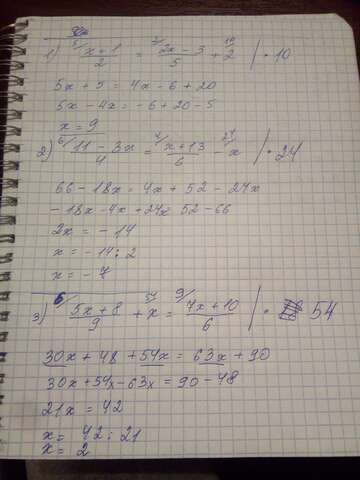 1) 5/ x+1 / 2 = 2/ 2x-3 / 5 + 10/ 2 | · 10
5x + 5 = 4x - 6 + 20
5x - 4x = -6 + 20 - 5
x = 9
2) 6/ 11 - 3x / 4 = 4/ x+13 / 6 - 24/ x | · 24
66 - 18x = 4x + 52 - 24x
- 18x - 4x + 24x 52 - 66
2x = - 14
x = -14 : 2
x = - 7
3) 6/ 5x + 8 / 9 + 54/ x = 9/ 7x + 10 / 6 | · 54
30x + 48 + 54x = 63x + 90
30x + 54x - 63x = 90 - 48
21x = 42
x = 42 : 21
x = 2